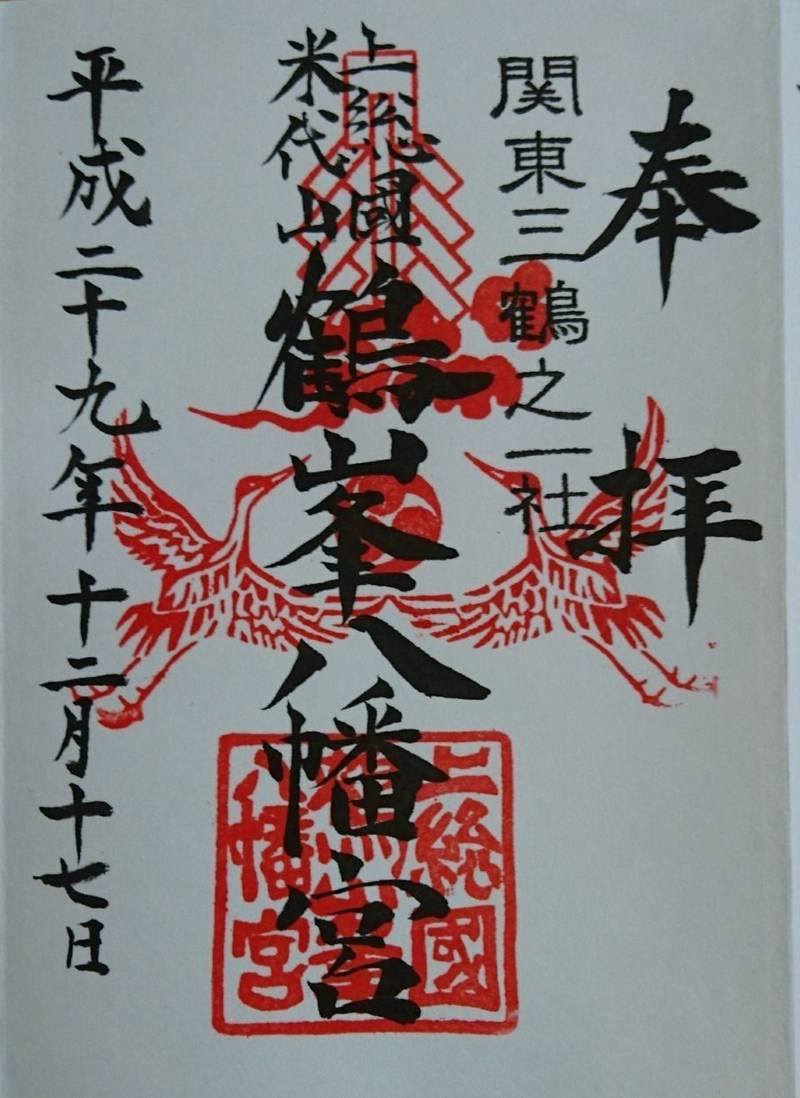 奉拝
関東三鶴之一社
上総國
米代山
鶴峯八幡宮
平成二十九年十二月十七日
上総國
鶴峯
八幡宮